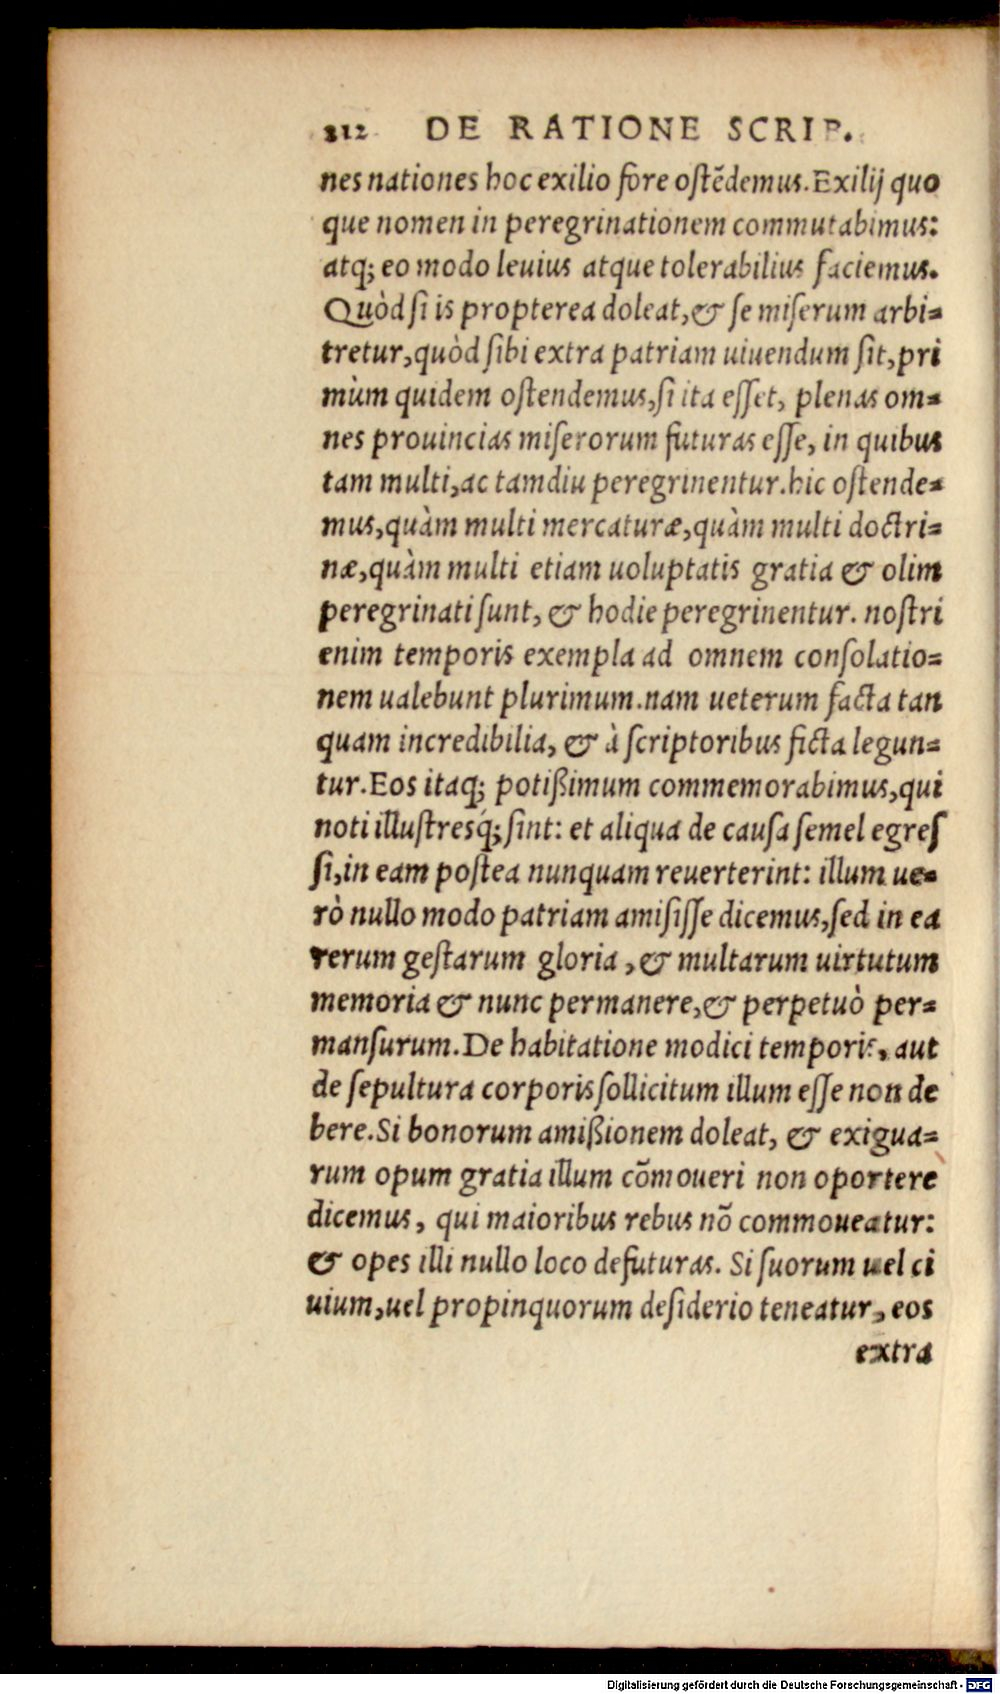 212 DE RATIONE SCRIP.
nes nationes hoc exilio fore ostēdemus. Exilij quo
que nomen in peregrinationem commutabimus:
atq; eo modo leuius atque tolerabilius faciemus.
Quòd si is propterea doleat, & se miserum arbi-
tretur, quòd sibi extra patriam uiuendum sit, pri
mùm quidem ostendemus, si ita esset, plenas om-
nes prouincias miserorum futuras esse, in quibus
tam multi, ac tamdiu peregrinentur. hic ostende-
mus, quàm multi mercaturæ, quàm multi doctri-
næ, quàm multi etiam uoluptatis gratia & olim
peregrinati sunt, & hodie peregrinentur. nostri
enim temporis exempla ad omnem consolatio-
nem ualebunt plurimum. nam ueterum facta tan
quam incredibilia, & à scriptoribus ficta legun-
tur. Eos itaq; potißimum commemorabimus, qui
noti illustresq́; sint: et aliqua de causa semel egres
si, in eam postea nunquam reuerterint: illum ue-
rò nullo modo patriam amisisse dicemus, sed in ea
rerum gestarum gloria, & multarum uirtutum
memoria & nunc permanere, & perpetuò per-
mansurum. De habitatione modici temporis, aut
de sepultura corporis sollicitum illum esse non de
bere. Si bonorum amißionem doleat, & exigua-
rum opum gratia illum cōmoueri non oportere
dicemus, qui maioribus rebus nō commoueatur:
& opes illi nullo loco defuturas. Si suorum uel ci
uium, uel propinquorum desiderio teneatur, eos
extra
Digitalisierung gefördert durch die Deutsche Forschungsgemeinschaft - DFG